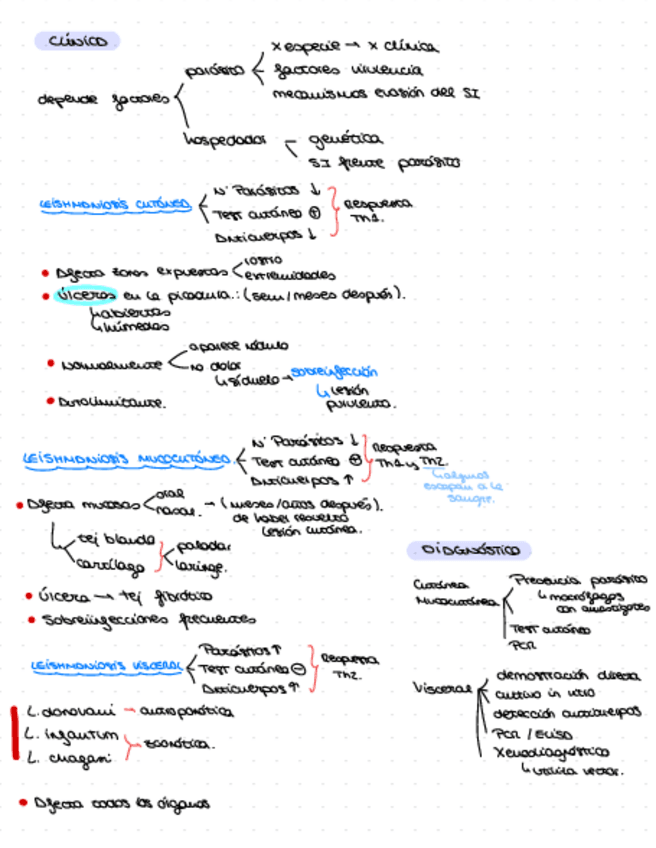 CLÍNICA
x especie → x clínica
parásito factores virulencia
mecanismos evasión del SI
depende factores
hospedador genética
SI frente parásito
LEISHMANIOSIS CUTÁNEA
Nº Parásitos ↓
Test cutáneo ⊕
Anticuerpos ↓
Respuesta
Th1.
• Afecta zonas expuestas rostro
extremidades
• Úlceras en la picadura: (sem/meses después).
↳ abiertas
↳ húmedas
• Normalmente aparece nódulo
no dolor
↳ si duele → sobreinfección
↳ lesión
purulenta.
• Autolimitante.
LEISHMANIOSIS MUCOCUTÁNEA
Nº Parásitos ↓
Test cutáneo ⊕
Anticuerpos ↑
Respuesta
Th1 y Th2.
↳ algunos
escapan a la
sangre.
• Afecta mucosas oral
nasal. → (meses/años después).
de haber resuelto
lesión cutánea.
↳ tej blando
cartílago
paladar
laringe.
• Úlcera → tej fibrótico
• Sobreinfecciones frecuentes
LEISHMANIOSIS VISCERAL
Parásitos ↑
Test cutáneo ⊖
Anticuerpos ↑
Respuesta
Th2.
L. donovani → antroponótica
L. infantum
L. chagasi
zoonótica.
• Afecta todos los órganos
DIAGNÓSTICO
Cutánea
Mucocutánea
Presencia parásito
↳ macrófagos
con amastigotes
Test cutáneo
PCR
Visceral
demostración directa
cultivo in vitro
detección anticuerpos
PCR / ELISA
Xenodiagnóstico
↳ utiliza vector.